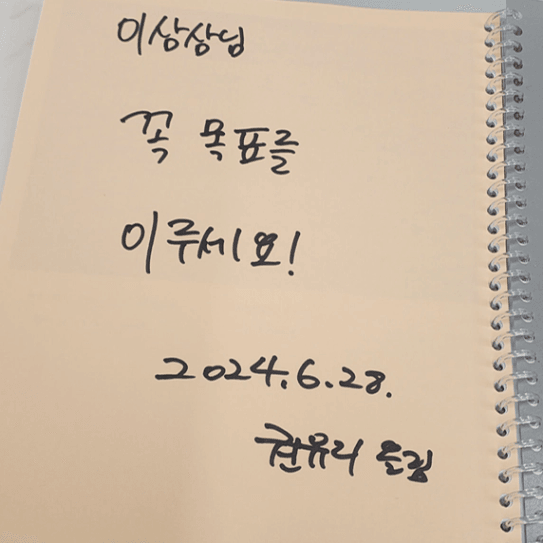 이상상님
꼭 목표를
이루세요!
2024.6.28.
권유리 올림